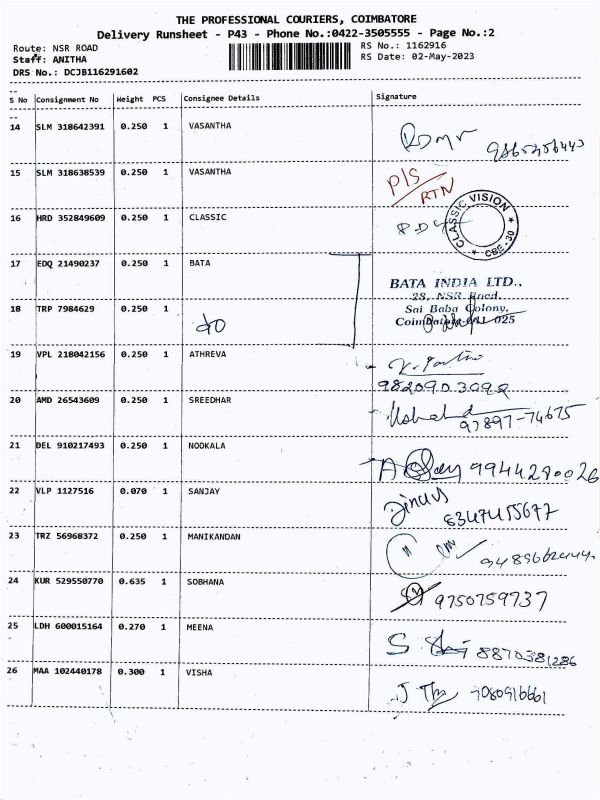 THE PROFESSIONAL COURIERS, COIMBATORE
Delivery Runsheet - P43 - Phone No.:0422-3505555 - Page No.:2
Route: NSR ROAD
RS No.: 1162916
Staff: ANITHA
RS Date: 02-May-2023
DRS No.: DCJB116291602
S No Consignment No Weight PCS Consignee Details Signature
14 SLM 318642391 0.250 1 VASANTHA
15 SLM 318638539 0.250 1 VASANTHA P/S
RTN
16 HRD 352849609 0.250 1 CLASSIC CLASSIC VISION CBE-30
17 EDQ 21490237 0.250 1 BATA
BATA INDIA LTD.,
28, NSR Road,
Sai Baba Colony,
18 TRP 7984629 0.250 1 do
Coimbatore-641 025
19 VPL 218042156 0.250 1 ATHREVA
20 AMD 26543609 0.250 1 SREEDHAR
97897-74675
21 DEL 910217493 0.250 1 NOOKALA 9944280026
22 VLP 1127516 0.070 1 SANJAY
23 TRZ 56968372 0.250 1 MANIKANDAN
24 KUR 529550770 0.635 1 SOBHANA 9750759737
25 LDH 600015164 0.270 1 MEENA 8870381286
26 MAA 102440178 0.300 1 VISHA